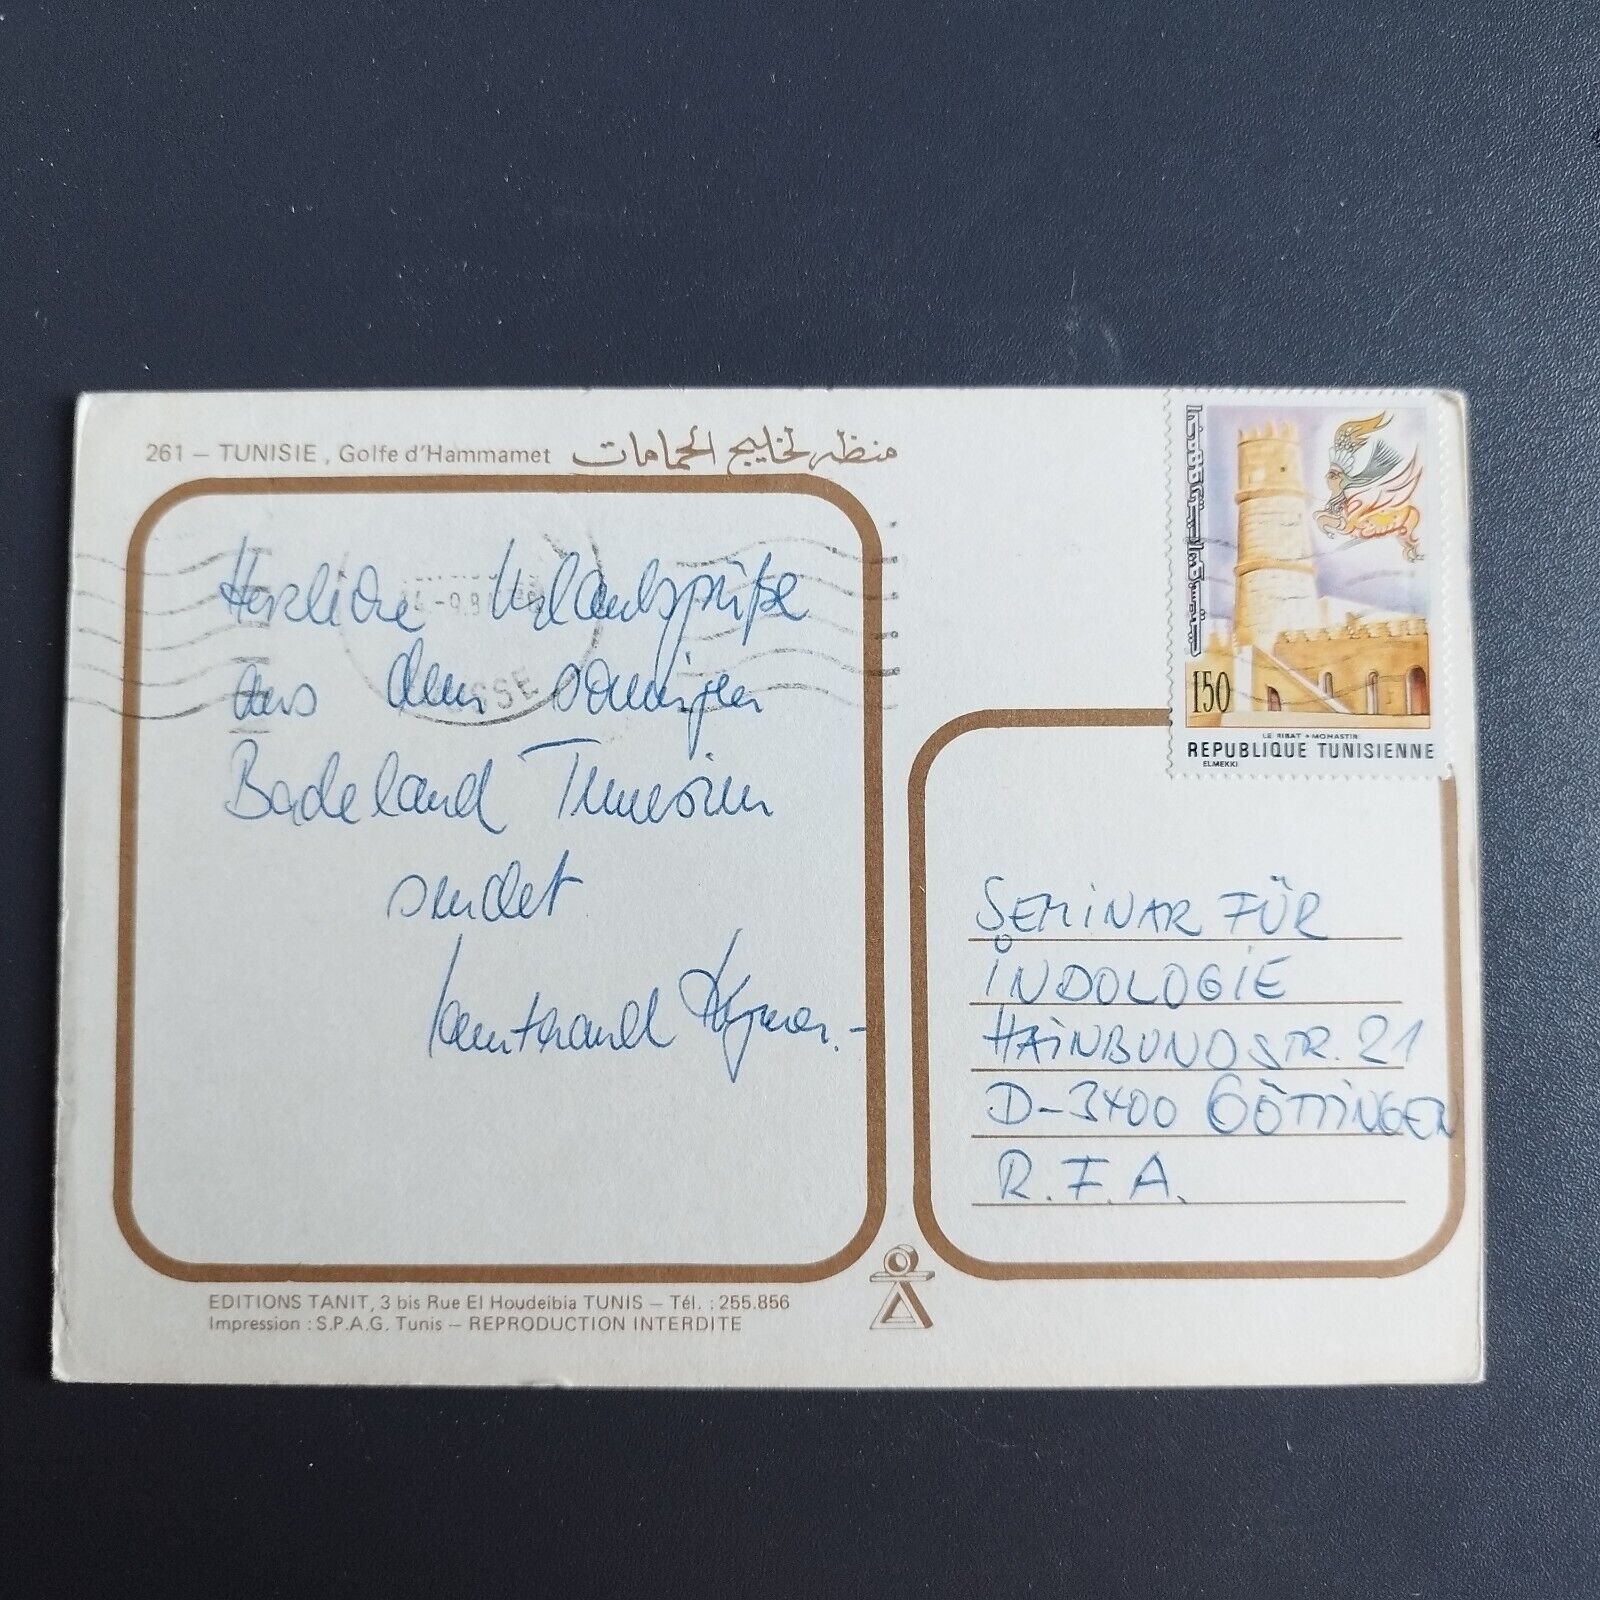 261 – TUNISIE, Golfe d'Hammamet منظر لخليج الحمامات
Herzliche Urlaubsgrüße
aus dem sonnigen
Badeland Tunesien
sendet
150
LE RIBAT • MONASTIR
REPUBLIQUE TUNISIENNE
ELMEKKI
SEMINAR FÜR
INDOLOGIE
HAINBUNDSTR. 21
D-3400 GÖTTINGEN
R.F.A.
EDITIONS TANIT, 3 bis Rue El Houdeibia TUNIS – Tél. : 255.856
Impression : S.P.A.G. Tunis – REPRODUCTION INTERDITE